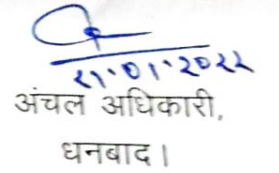 २१.०१.२०२२
अंचल अधिकारी,
धनबाद।